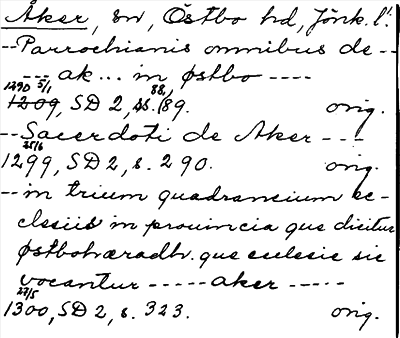 Åker, sn, Östbo hd, Jönk. l.
-- Parrochianis omnibus de --
--- ak... in østbo ----
1290 5/1 88,
1209, SD 2, s. 89. orig.
-- Sacerdoti de Aker ---
25/6
1299, SD 2, s. 290. orig.
-- in trium quadrancium ec-
clesiis in prouincia que dicitur
østbohæradh. que ecclesie sic
vocantur ----- aker -----
27/5
1300, SD 2, s. 323. orig.